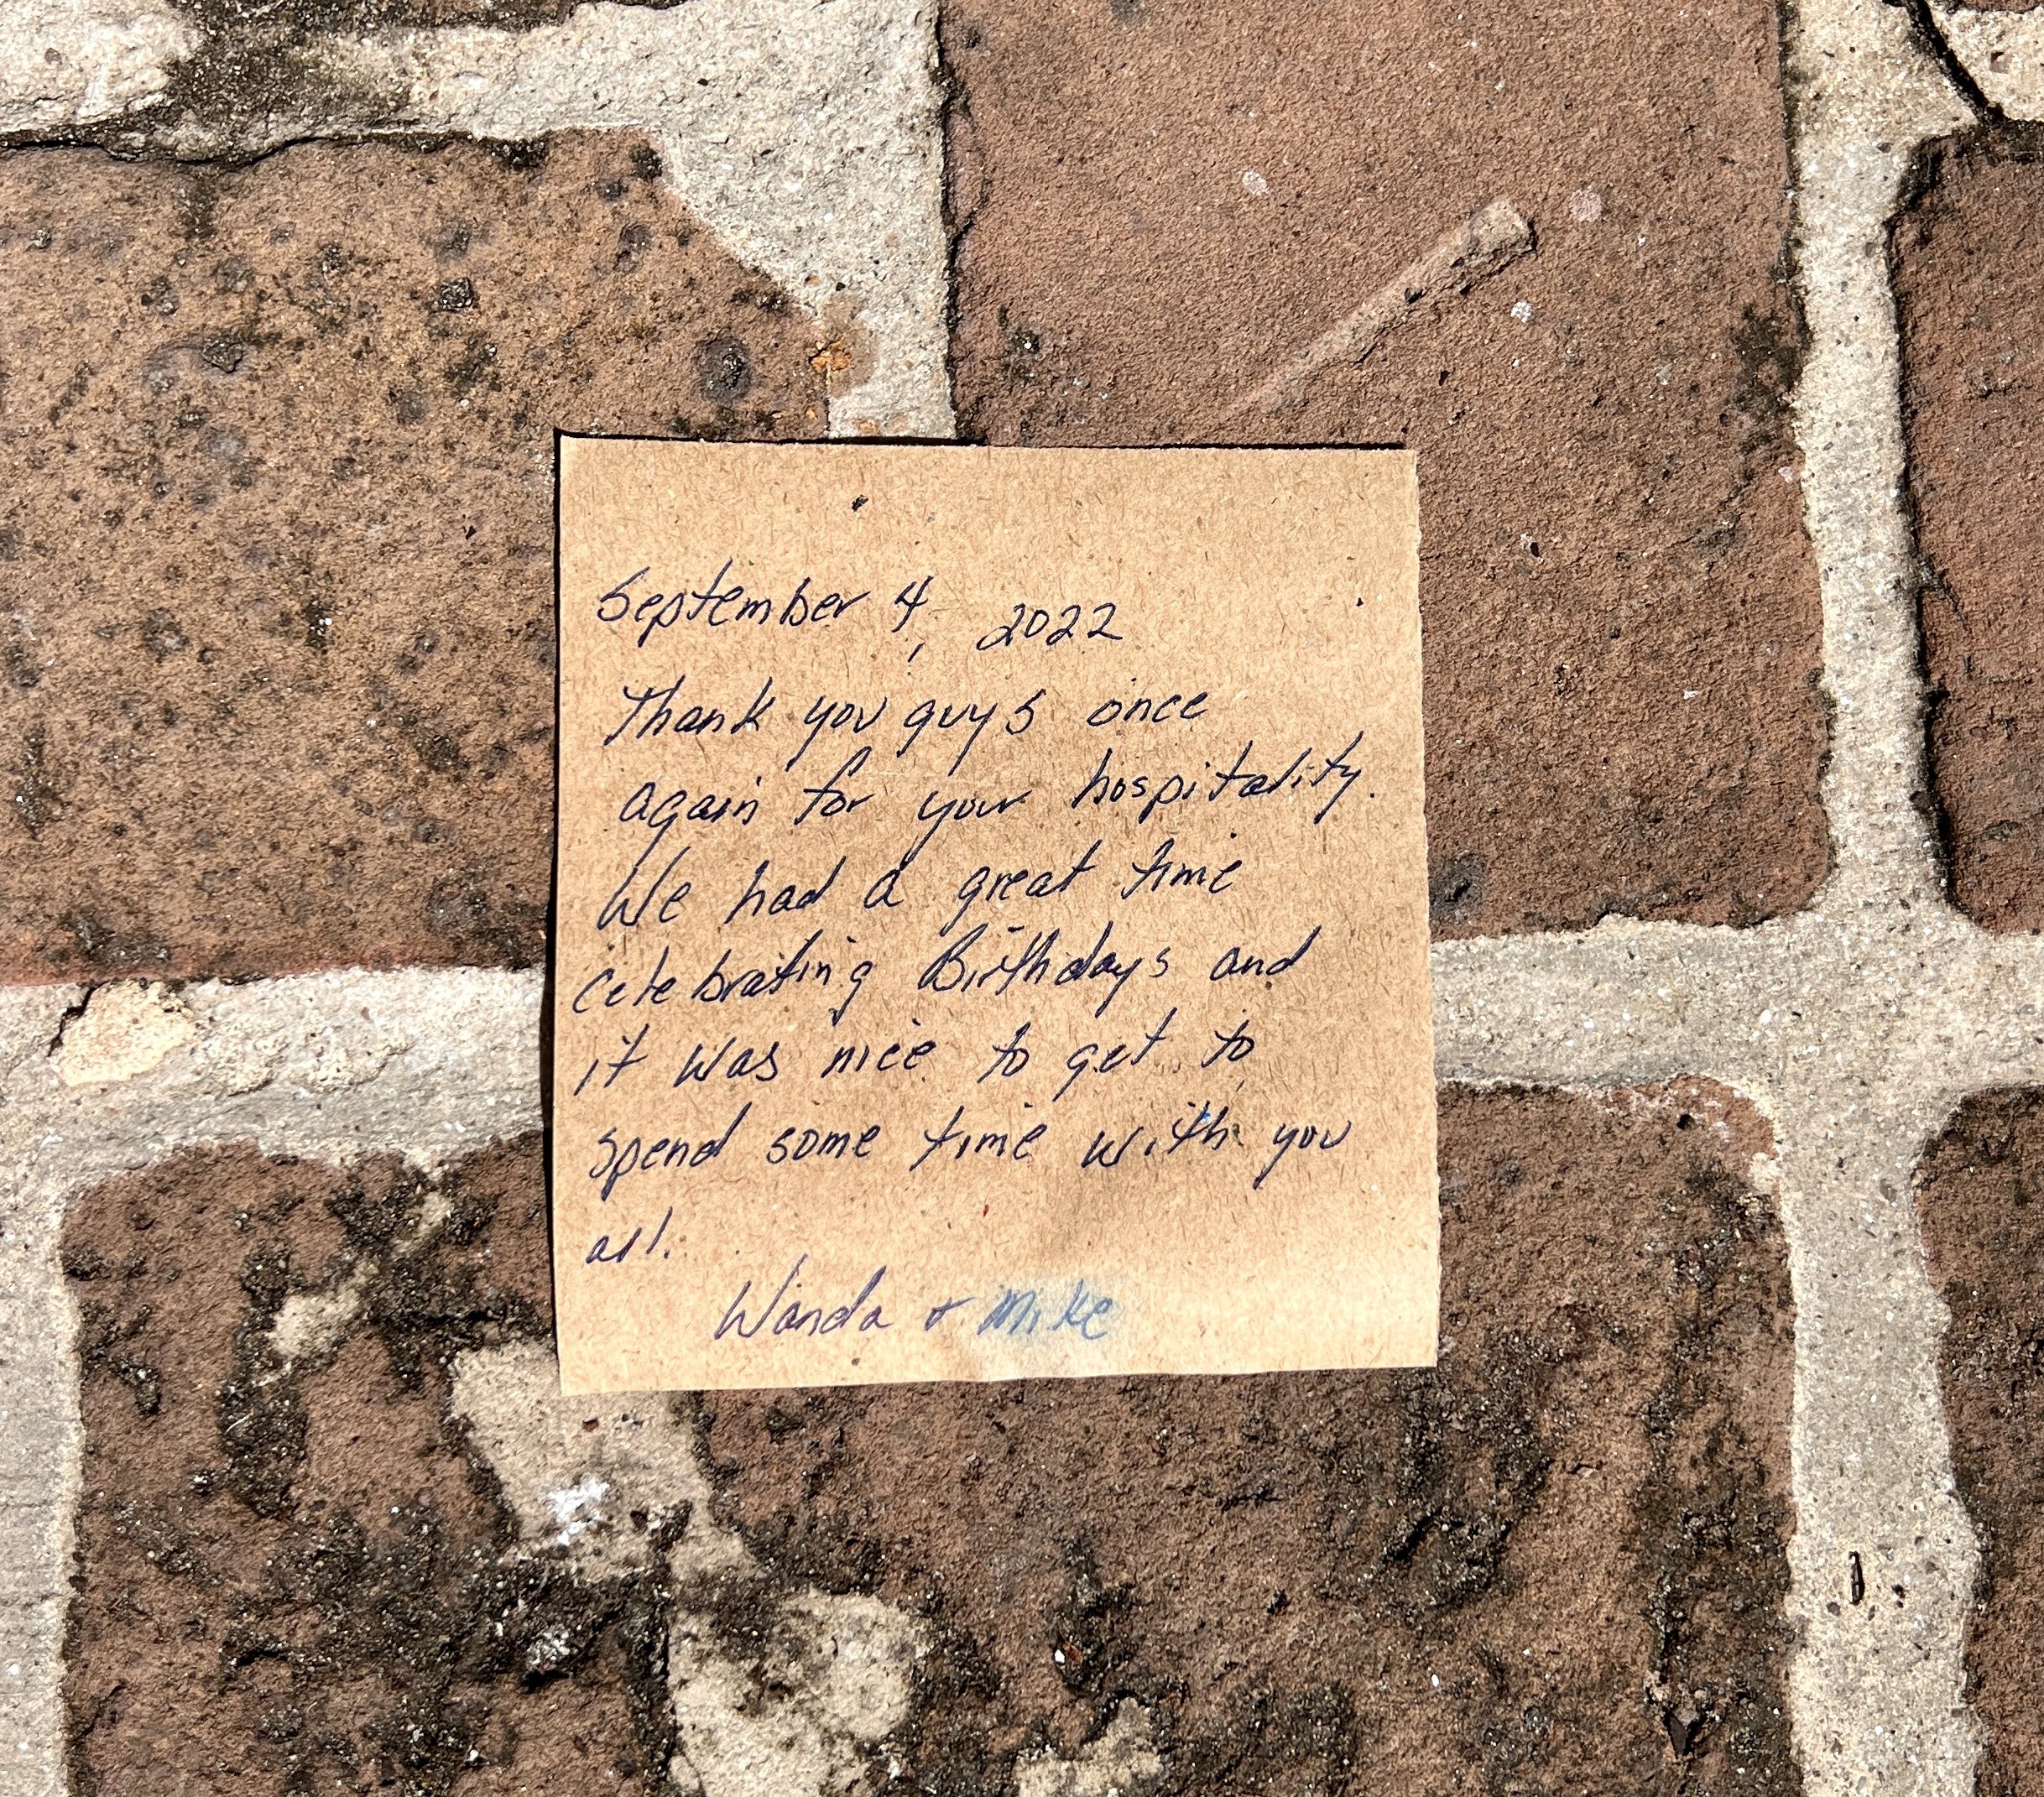 September 4, 2022
Thank you guys once
again for your hospitality.
We had a great time
celebrating Birthdays and
it was nice to get to
spend some time with you
all.
Wanda + Mike